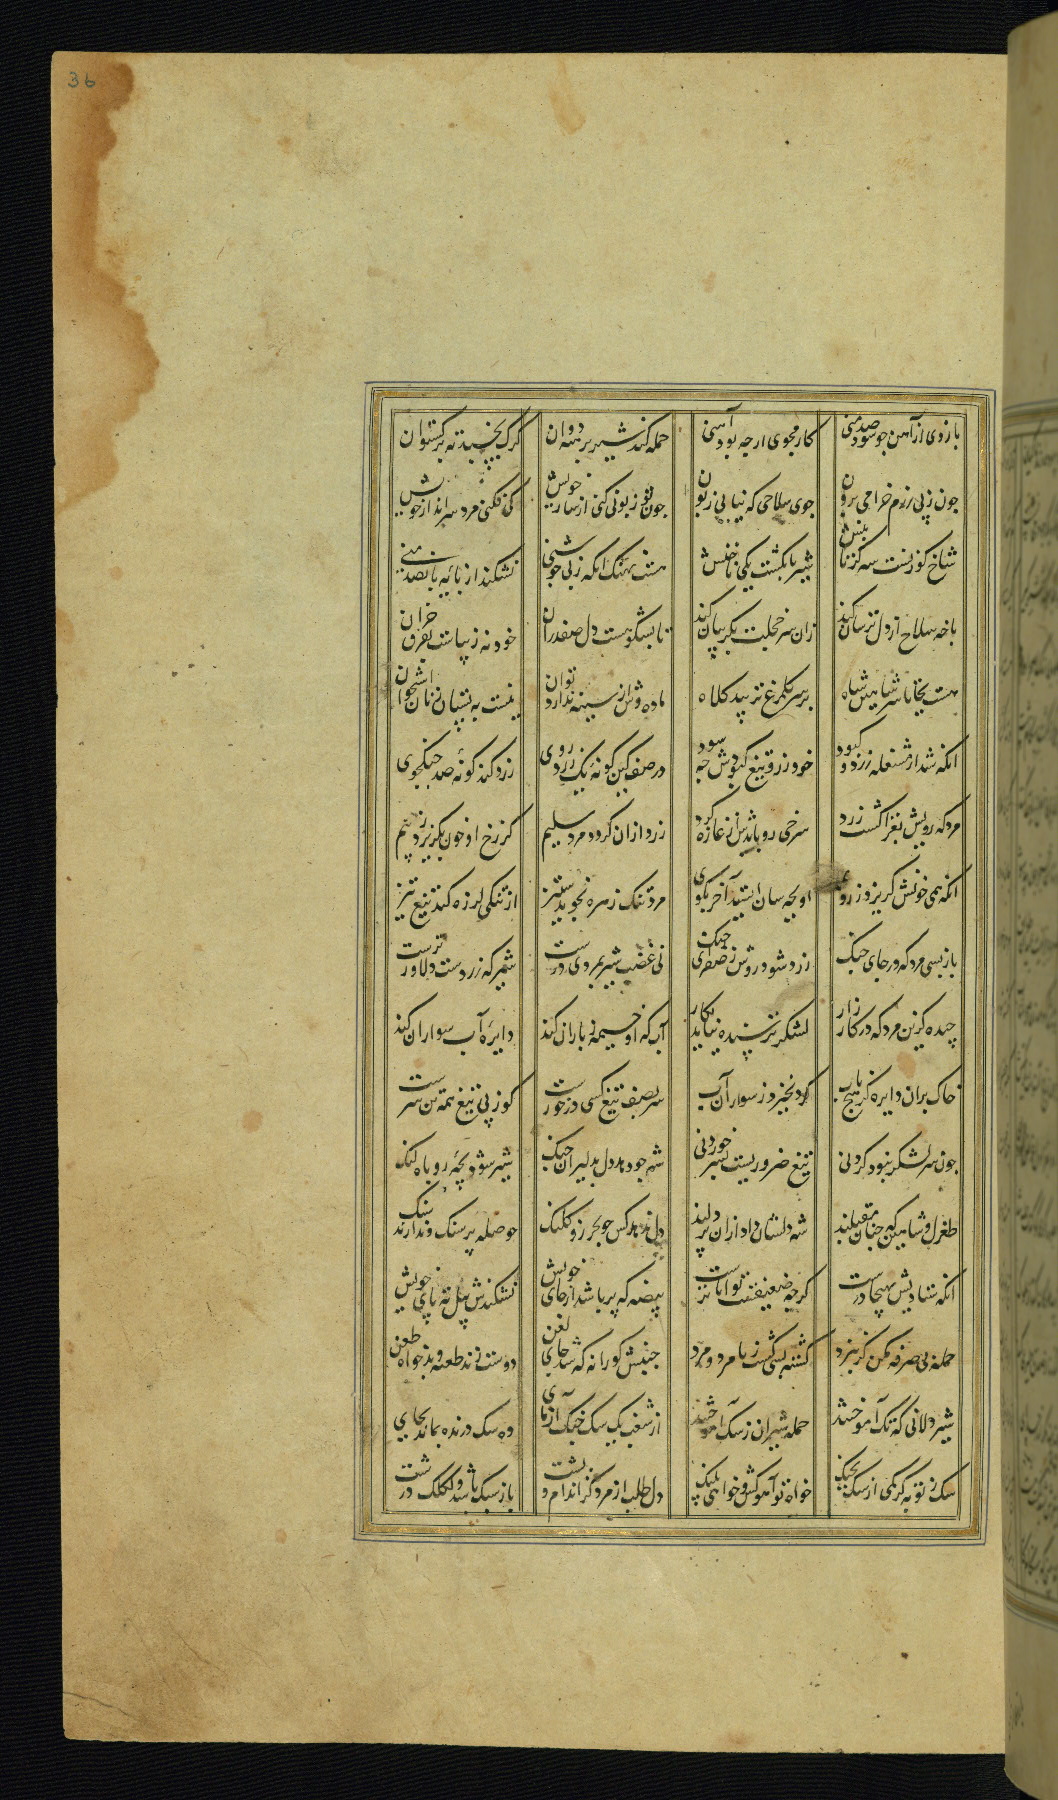 36
بازوی از آهن چو شود صد منی کار مجوی ارچه بود آهنی حمله کند شیر برهنه دوان گرگ بخسپد ته برگستوان
چون ز پی رزم خرامی برون جوی سلاحی که نیابی زبون چون تو زبونی کنی از ساز خویش کی فکنی مرد سرانداز خویش
شاخ گوزنست سه گز تا شیر بانگشت یکی ناخنش هست نهنگ آنکه ز بی جوشنی نشکند از پایه پانصد منی
با خود سلاح از دل ترسان کند زان سر خجلت بگریبان کند تا بشکوهست دل صفدران خود نه زیباست بفرق خران
هست بجا تا سر شاهین شاه بر سر کلمرغ نزیبد کلاه ماده وش از سینه ندارد توان نیست به پستان زنان استخوان
آنکه شد از مشغله زرد و کبود خود زر و تیغ کبودش چه سود در صف کین گونه یک زرد روی زرد کند گونه صد جنگجوی
مرد که رویش بغزا گشت زرد سرخی رو بایدش از غازه کرد زرد ازان گردد مرد سلیم کز رخ او خون بگریزد ز بیم
آنکه همی خونش گریزد ز روی او بچه سان ایستد آخر بگوی مرد تنک زهره نجوید ستیز از تنکی لرزه کند تیغ تیز
باز بسی مرد که در جای جنگ زرد شود روش ز صفرای جنگ بی غضب شیر بمردی درست شیر که زردست دلاورترست
چیده گزین مرد که در کارزار لشکر ترسیده نیاید بکار آب که او خیمه ز باران کند دایره آب سواران کند
خاک بران دایره کز هیچ باب گرد نخیزد ز سوار آن آب سر بصف تیغ کسی در خورست کو ز پی تیغ همه تن سرست
چون سر لشکر نبود کردنی تیغ ضروریست بسر خوردنی شه چو دهد دل بدلیران جنگ شیر شود بچه روباه لنگ
طغرل و شاهین که چنان مقبلند شه دلشان داد ازان پر دلند دل ندهد کس چو بجرز و کلنگ حوصله پر سنگ و ندارند سنگ
آنکه ستادیش بهیجا درست گرچه ضعیفست تواناترست بیضه که بر پا شد از جای خویش نشکندش پیل ته پای خویش
حمله بی صرفه مکن کز نبرد کشته بسی گشت ز نامرد و مرد جنبش کورانه که شد جای لغن دوست زند طعنه و بدخواه طعن
شیردلانی که تک آموختند حمله شیران ز سگ آموختند از شغب یک سگ جنگ آزمای ده سگ درنده بماند بجای
سگ ز تو به گرمی از سگ بجنگ خواه تو آهو کش و خواهی پلنگ دل طلب از مرد گز اندام درشت باز سبک باشد و لکلک درشت